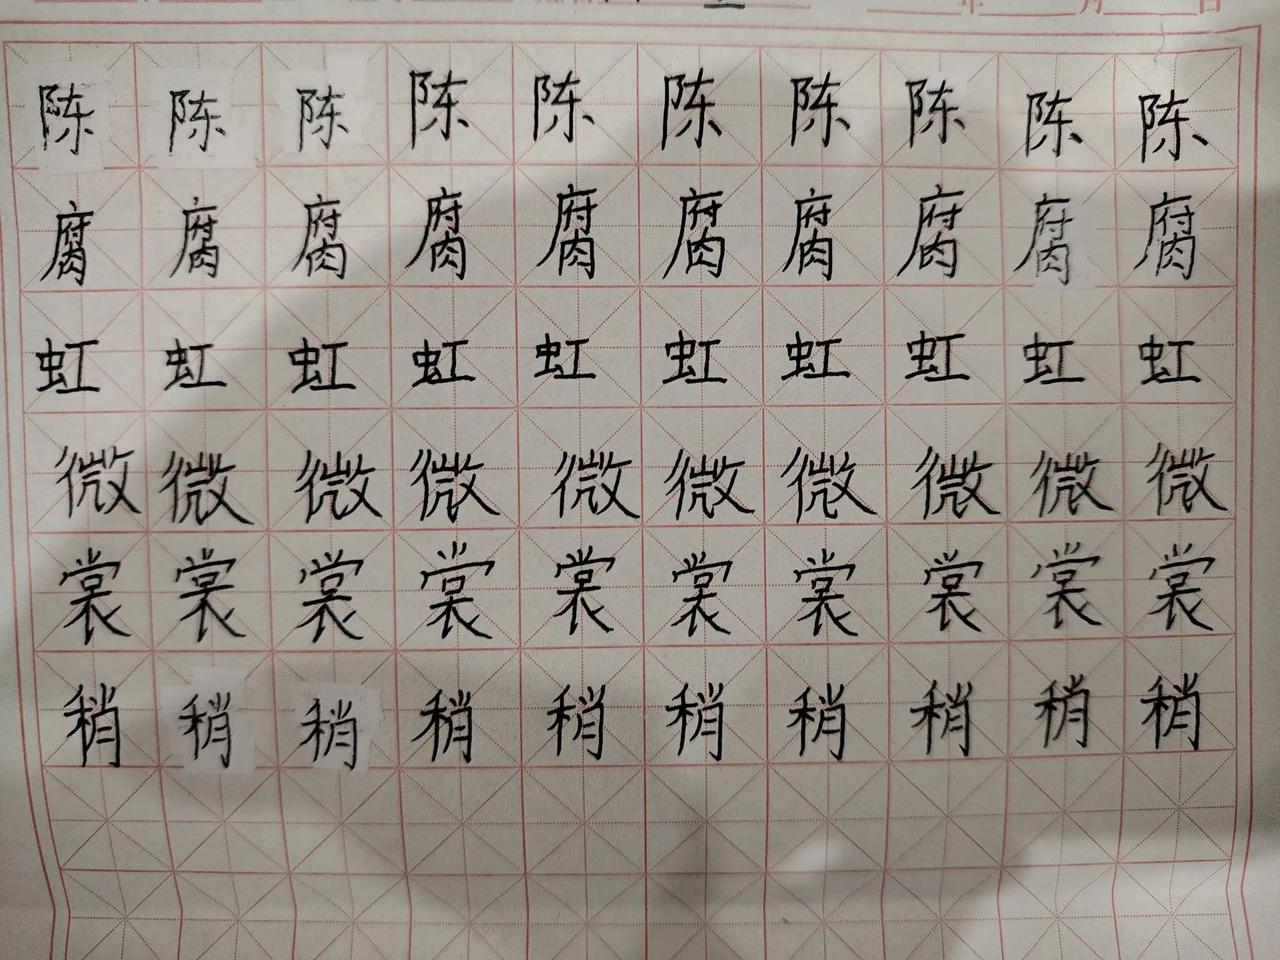 年 月 日
陈 陈 陈 陈 陈 陈 陈 陈 陈 陈
腐 腐 腐 腐 腐 腐 腐 腐 腐 腐
虹 虹 虹 虹 虹 虹 虹 虹 虹 虹
微 微 微 微 微 微 微 微 微 微
裳 裳 裳 裳 裳 裳 裳 裳 裳 裳
稍 稍 稍 稍 稍 稍 稍 稍 稍 稍